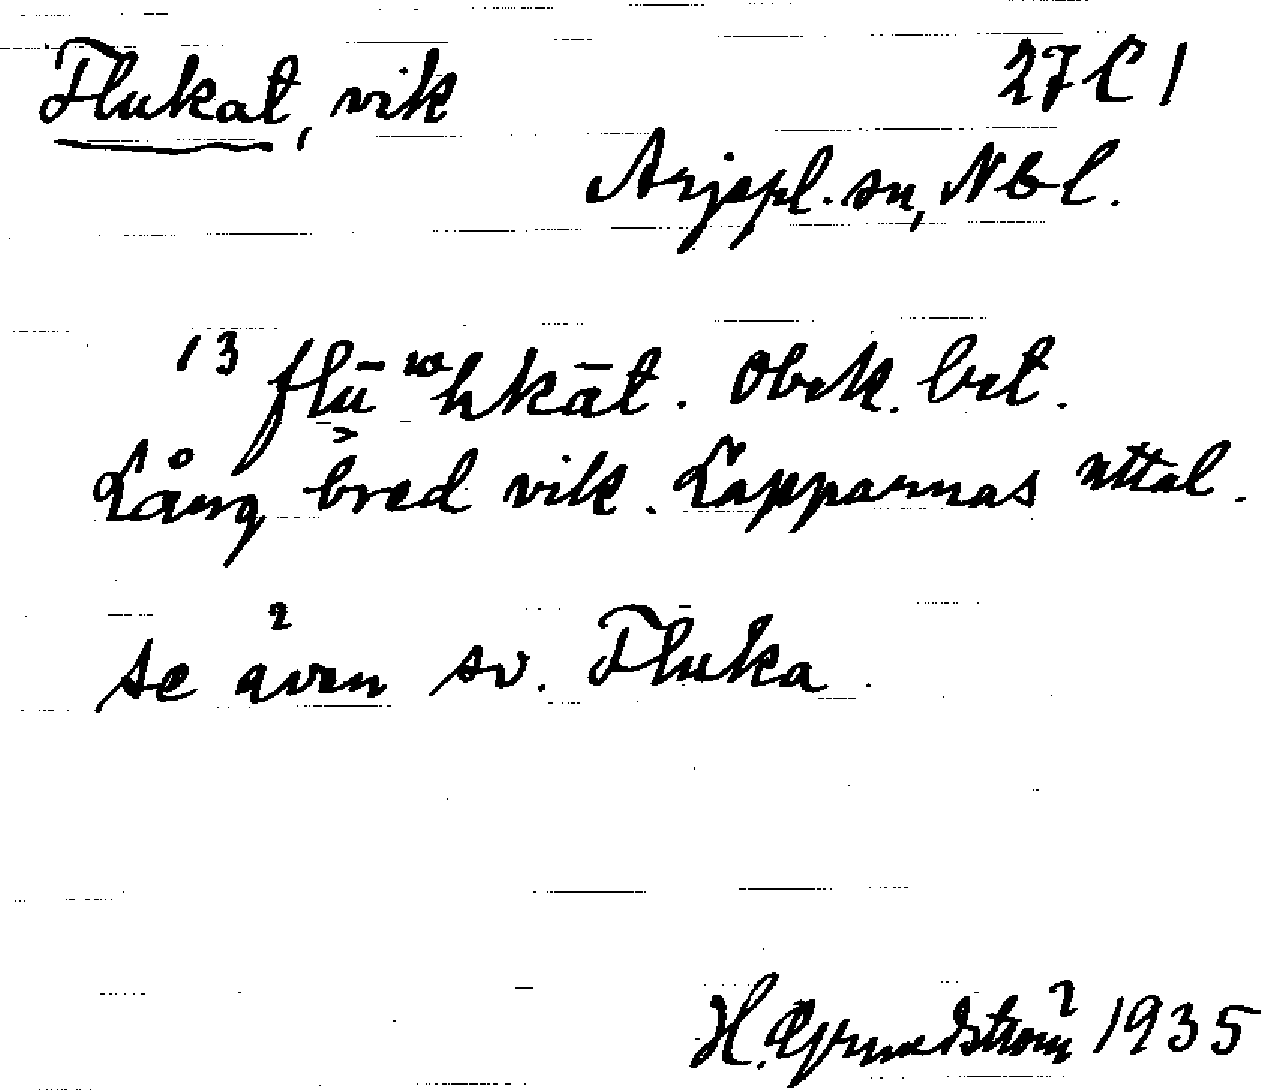 Flukat, vik 27 C 1
Arjepl. sn, Nbl.
13 flūʷhkāt. Obek. bet.
Lång, bred vik. Lapparnas uttal.
Se även sv. Fluka.
H. Grundström 1935